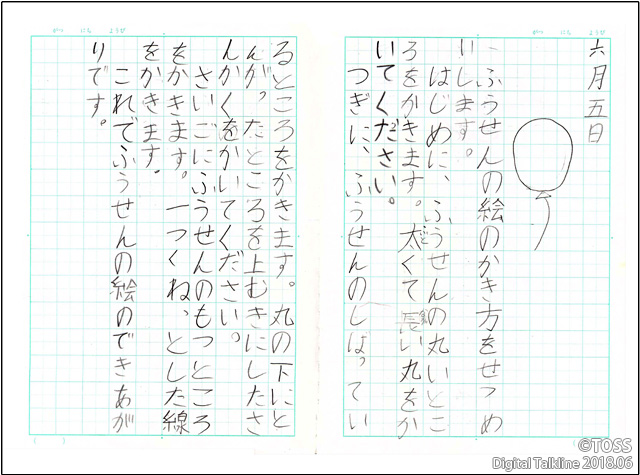 がつ にち ようび
六月五日
ふうせんの絵のかき方をせつめ
いします。
はじめに、ふうせんの丸いとこ
ろをかきます。太くて長い丸をか
いてください。
つぎに、ふうせんのしばってい
がつ にち ようび
るところをかきます。丸の下にと
んがったところを上むきにしたさ
んかくをかいてください。
さいごにふうせんのもつところ
をかきます。一つくねっとした線
をかきます。
これでふうせんの絵のできあが
りです。
©TOSS
Digital Talkline 2018.06